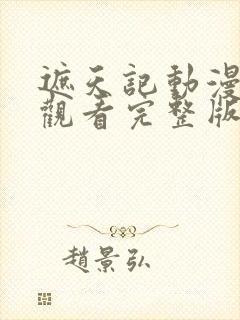 遮天記動漫
觀看完整版
趙景弘